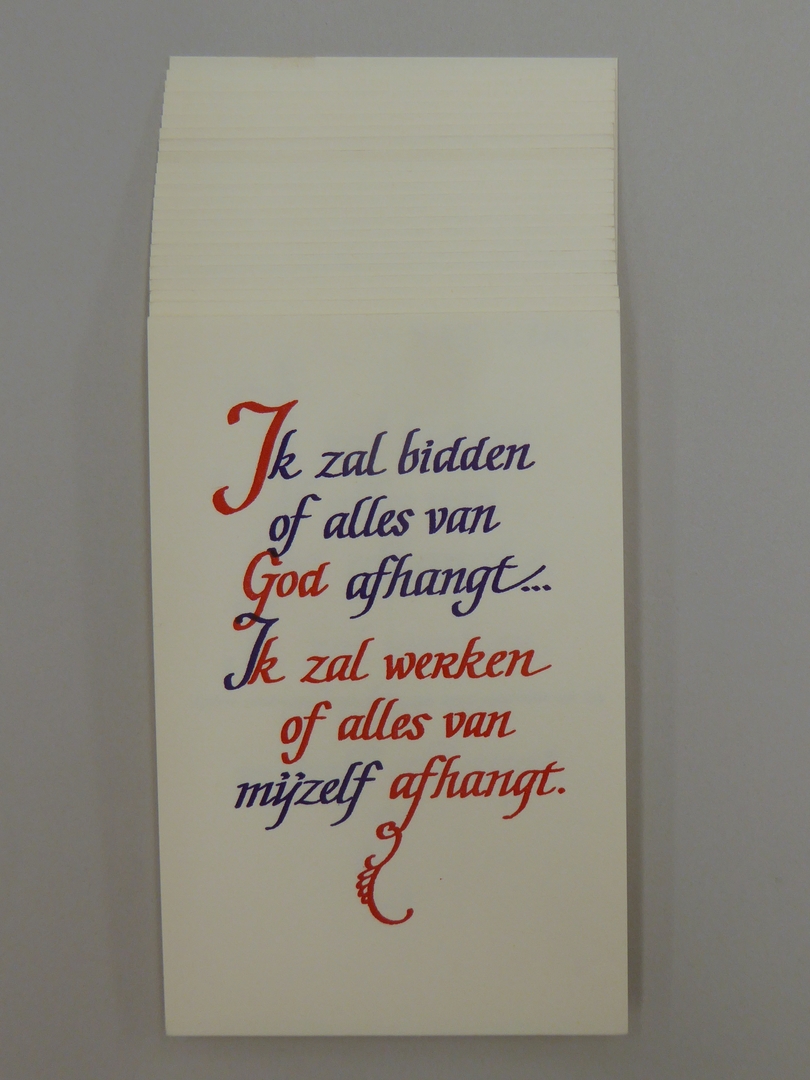 Ik zal bidden
of alles van
God afhangt...
Ik zal werken
of alles van
mijzelf afhangt.